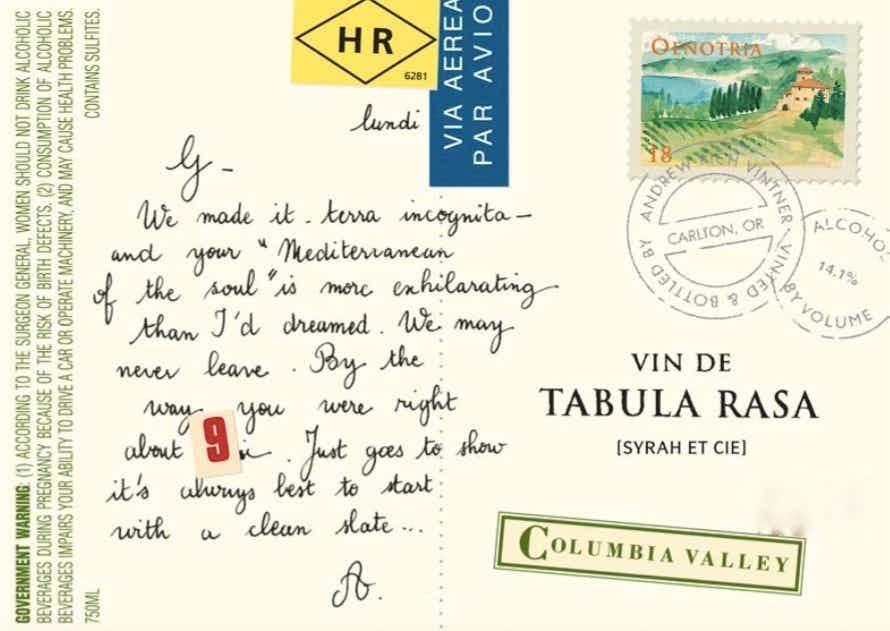 GOVERNMENT WARNING: (1) ACCORDING TO THE SURGEON GENERAL, WOMEN SHOULD NOT DRINK ALCOHOLIC
BEVERAGES DURING PREGNANCY BECAUSE OF THE RISK OF BIRTH DEFECTS. (2) CONSUMPTION OF ALCOHOLIC
BEVERAGES IMPAIRS YOUR ABILITY TO DRIVE A CAR OR OPERATE MACHINERY, AND MAY CAUSE HEALTH PROBLEMS.
750ML CONTAINS SULFITES.
HR
6281
VIA AEREA
PAR AVIO
lundi
G -
We made it - terra incognita -
and your "Mediterranean
of the soul" is more exhilarating
than I'd dreamed. We may
never leave. By the
way you were right
about
9
. Just goes to show
it's always best to start
with a clean slate...
A.
OENOTRIA
18
ANDREW RICH VINTNER · VINTED & BOTTLED BY
CARLTON, OR
ALCOHOL
14.1%
BY VOLUME
VIN DE
TABULA RASA
[SYRAH ET CIE]
COLUMBIA VALLEY